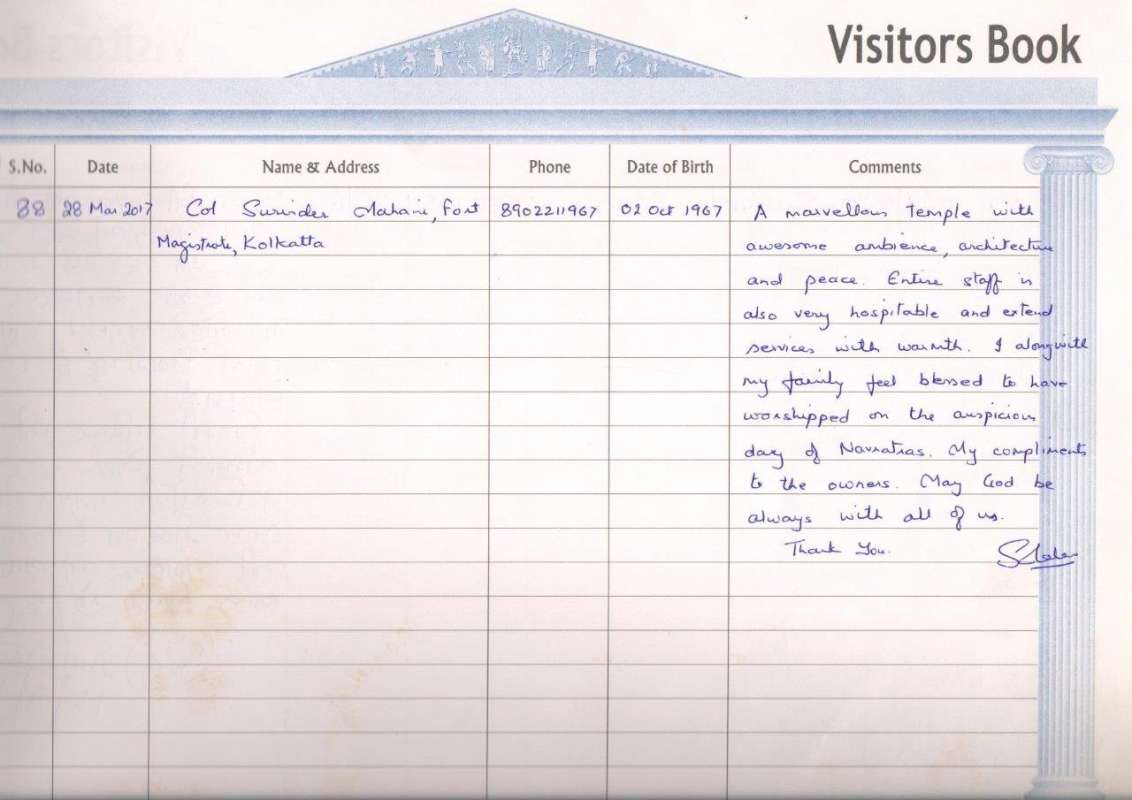 Visitors Book
S.No. Date Name & Address Phone Date of Birth Comments
88 28 Mar 2017 Col Surinder Fort 8902211967 02 Oct 1967 A marvellous temple with
Magistrate, Kolkatta awesome ambience, architecture
and peace. Entire staff is
also very hospitable and extend
services with warmth. I alongwith
my family feel blessed to have
worshipped on the auspicious
day of Navratras. My compliments
to the owners. May God be
always with all of us.
Thank You.